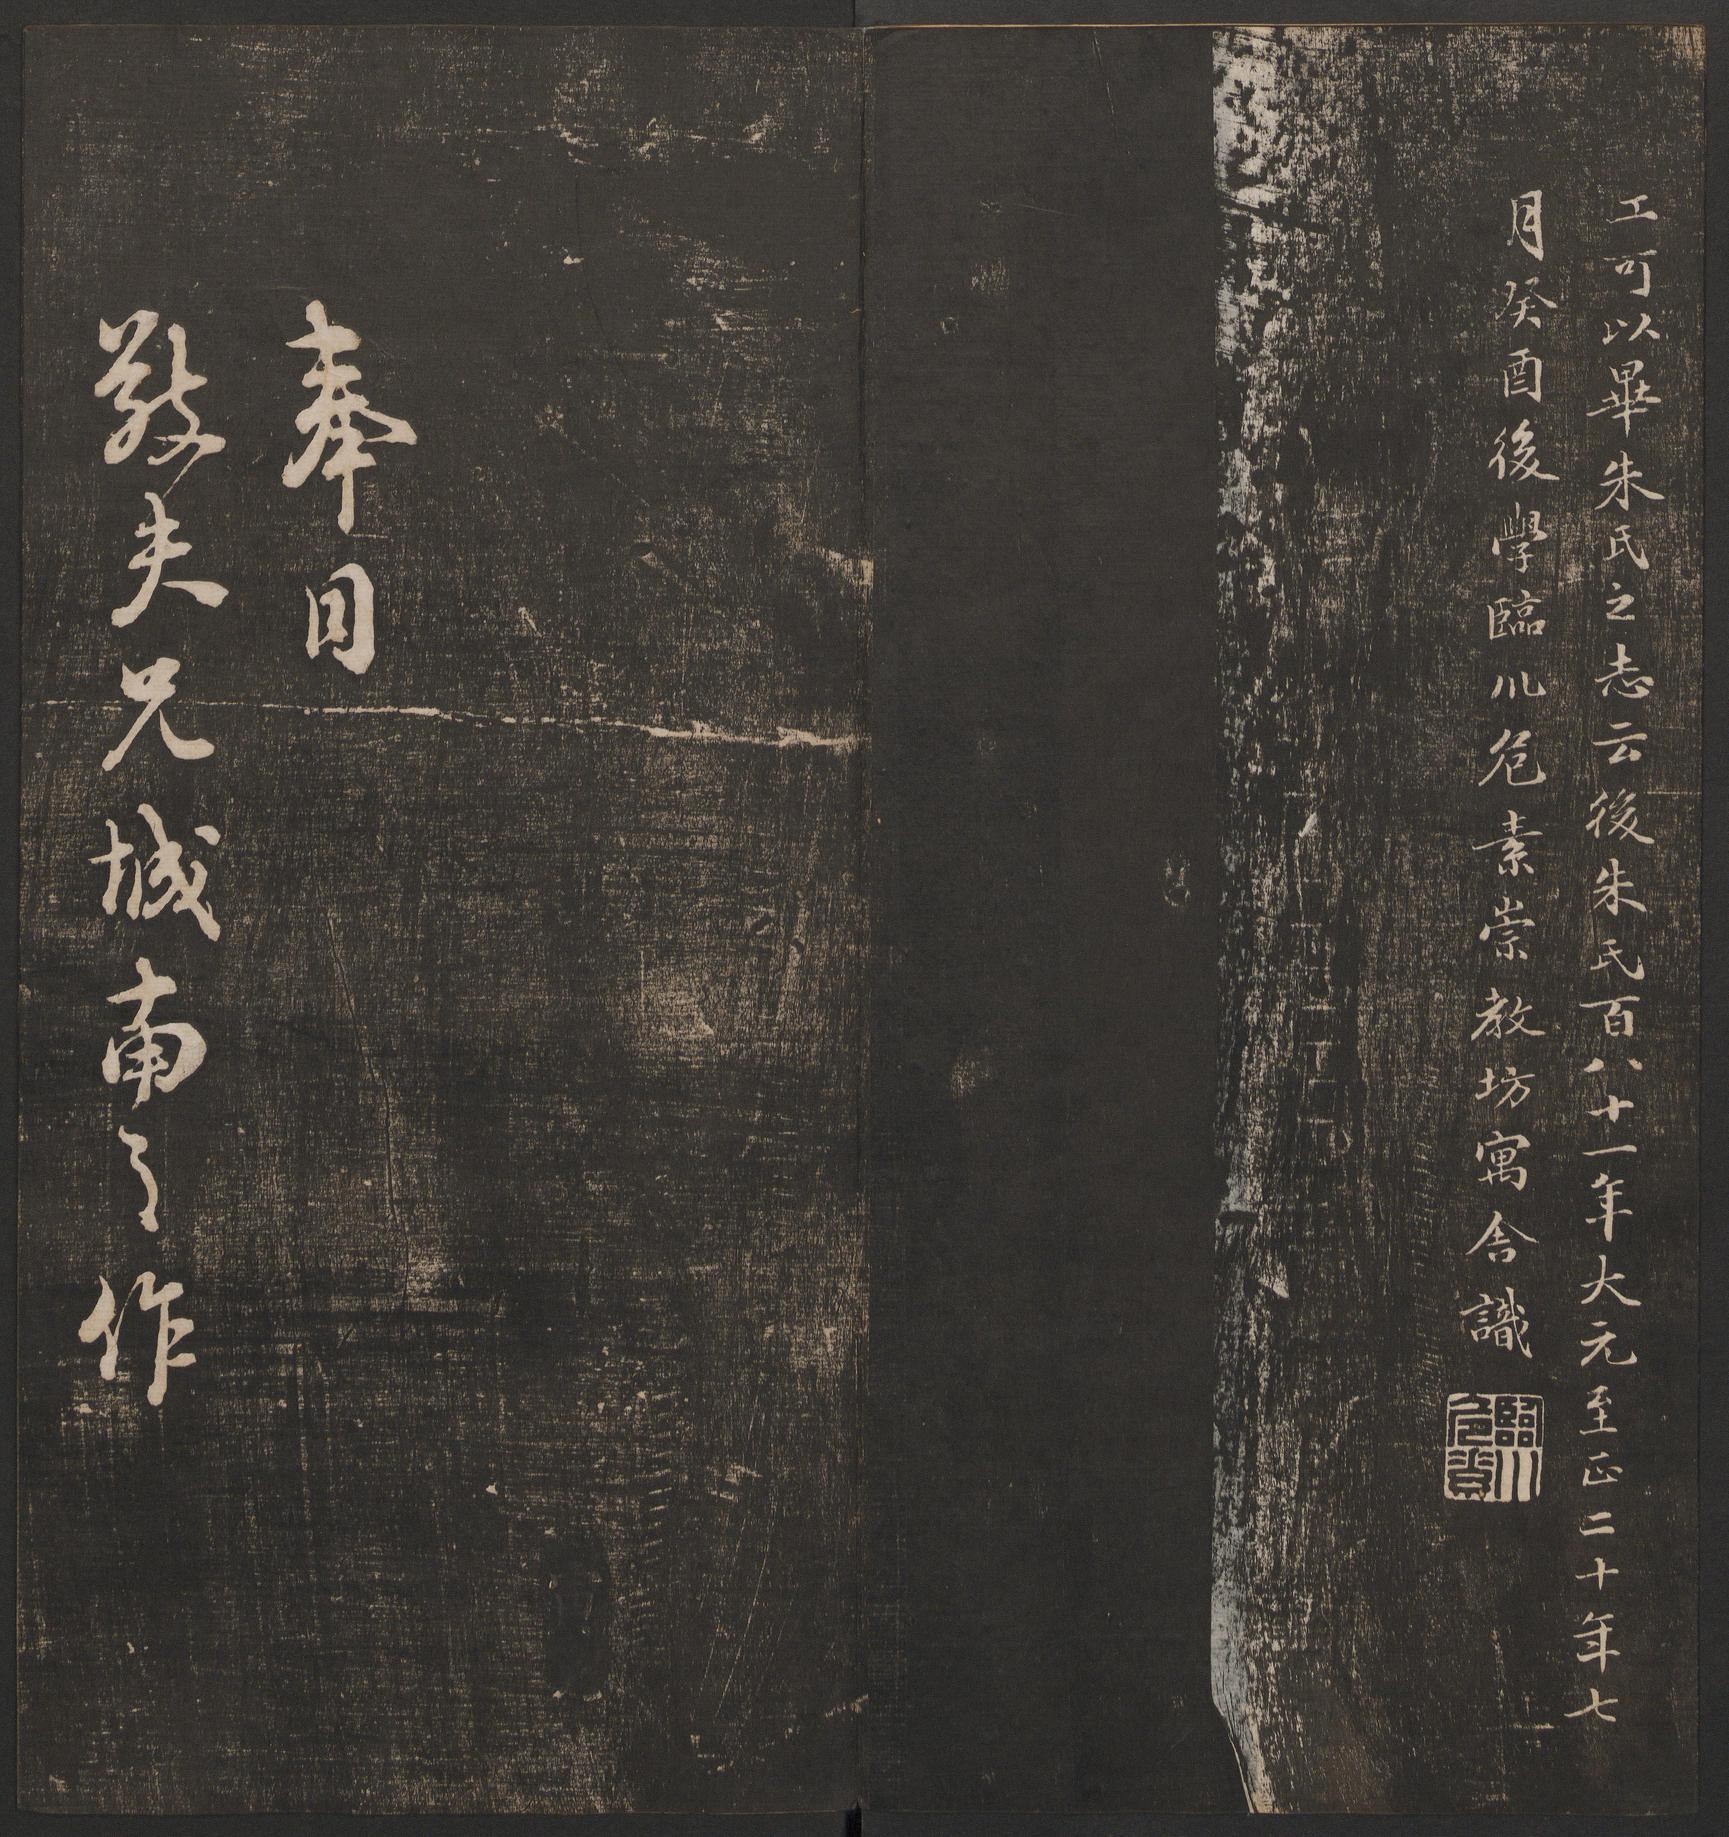 工可以畢朱氏之志云後朱氏百八十一年大元至正二十年七
月癸酉後學臨川危素崇教坊寓舍識
臨川危素
奉同
敬夫兄城南之作